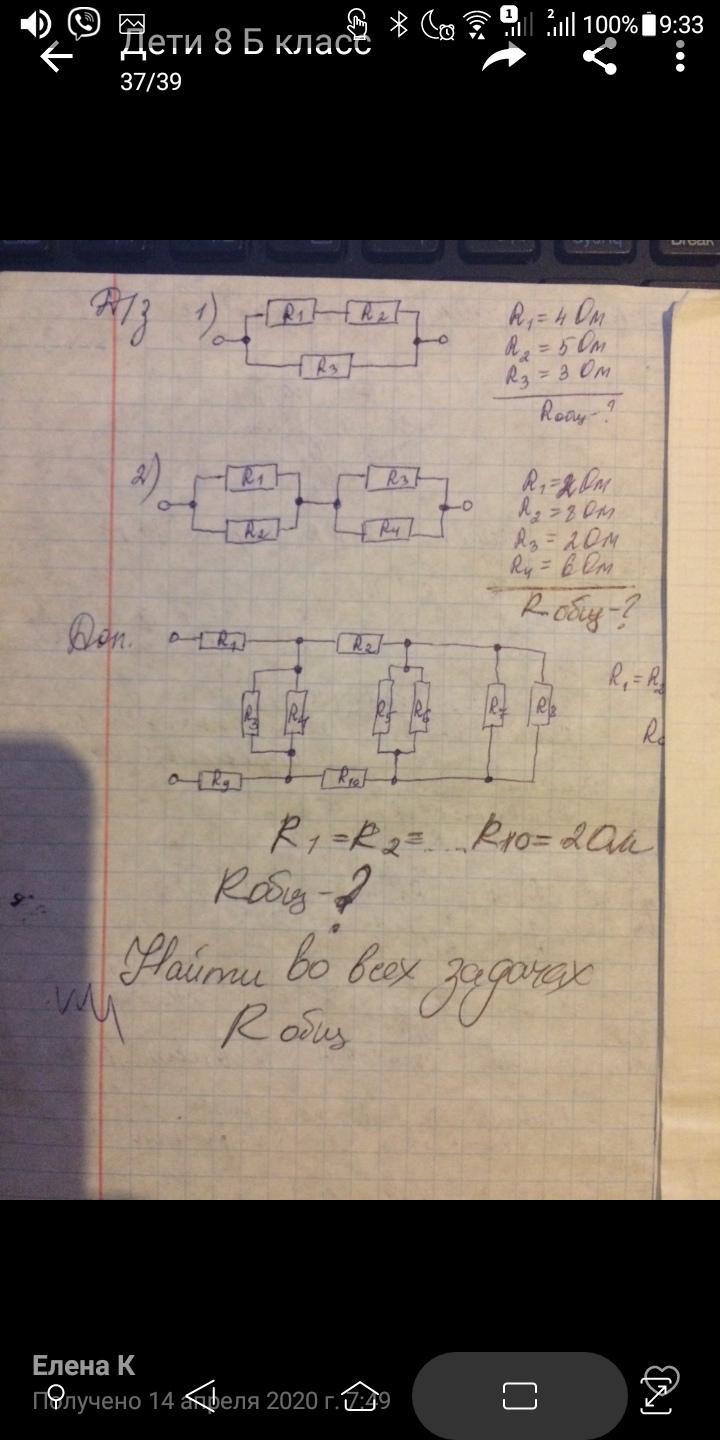 1 2 100% 9:33
Дети 8 Б класс
37/39
SysRq Break
Д/з 1) R1 R2 R3
R1 = 4 Ом
R2 = 5 Ом
R3 = 3 Ом
Rобщ-?
2) R1 R3
R2 R4
R2 = 8 Ом
R3 = 2 Ом
R4 = 6 Ом
Rобщ-?
Доп. R1 R2
R3 R4 R5 R6 R7 R8
R1 = R2
R9 R10
R1 = R2 = .... R10 = 2 Ом
Rобщ-?
Найти во всех задачах
R общ
Елена К
Получено 14 апреля 2020 г. 7:49